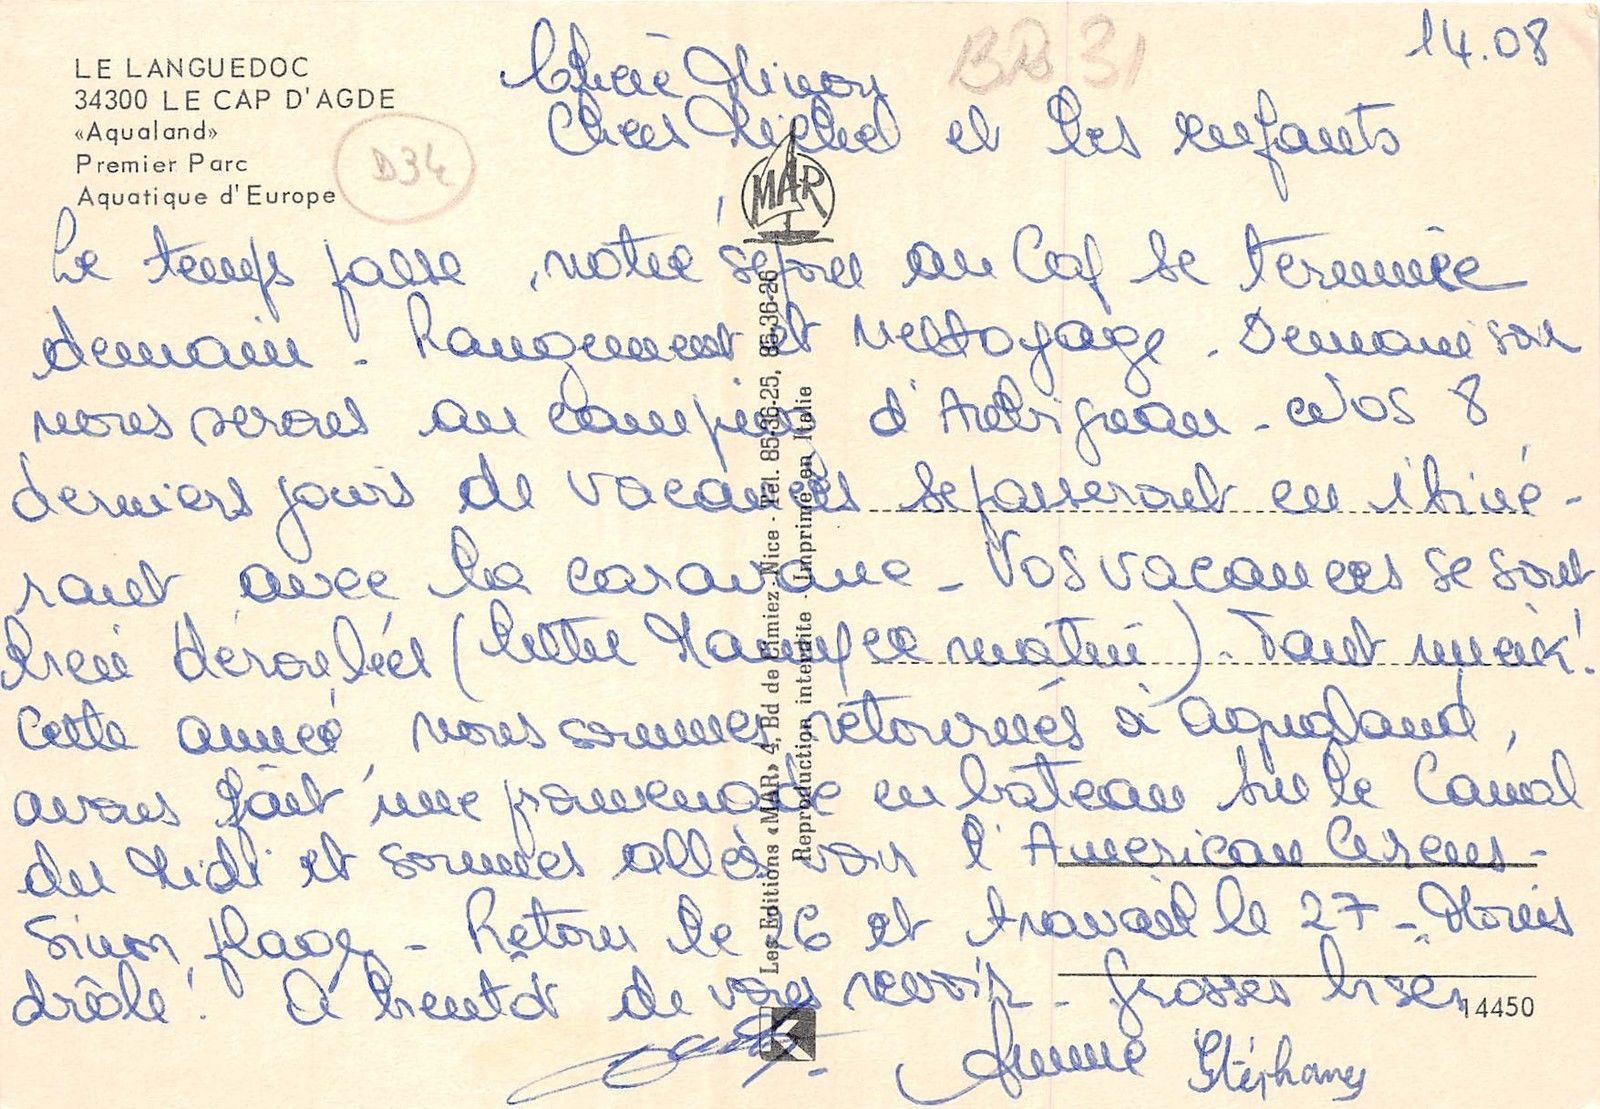 LE LANGUEDOC
34300 LE CAP D'AGDE
«Aqualand»
Premier Parc
Aquatique d'Europe
D34
BB 31
14.08
Chère Ninon
Cher Michel et les enfants
MAR
Le temps passe, notre séjour au Cap se termine
demain - Rangement et nettoyage. Demain soir
nous serons au camping d'Aubignan - Nos 8
derniers jours de vacances se passeront en itiné-
rant avec la caravane - Vos vacances se sont
bien déroulées (lettre Mamy ce matin). Tant mieux!
Cette année, nous sommes retournés à aqualand,
avons fait une promenade en bateau sur le Canal
du Midi et sommes allés voir l'American Circus -
Sinon plage - Retour le 26 et travail le 27 - Moins
drôle! A bientôt de vous revoir - Grosses bises
Anne Stéphany
Les Editions «MAR» 4, Bd de Cimiez - Nice - Tel. 85-36-25, 85-36-26
Reproduction interdite - Imprimé en Italie
14450